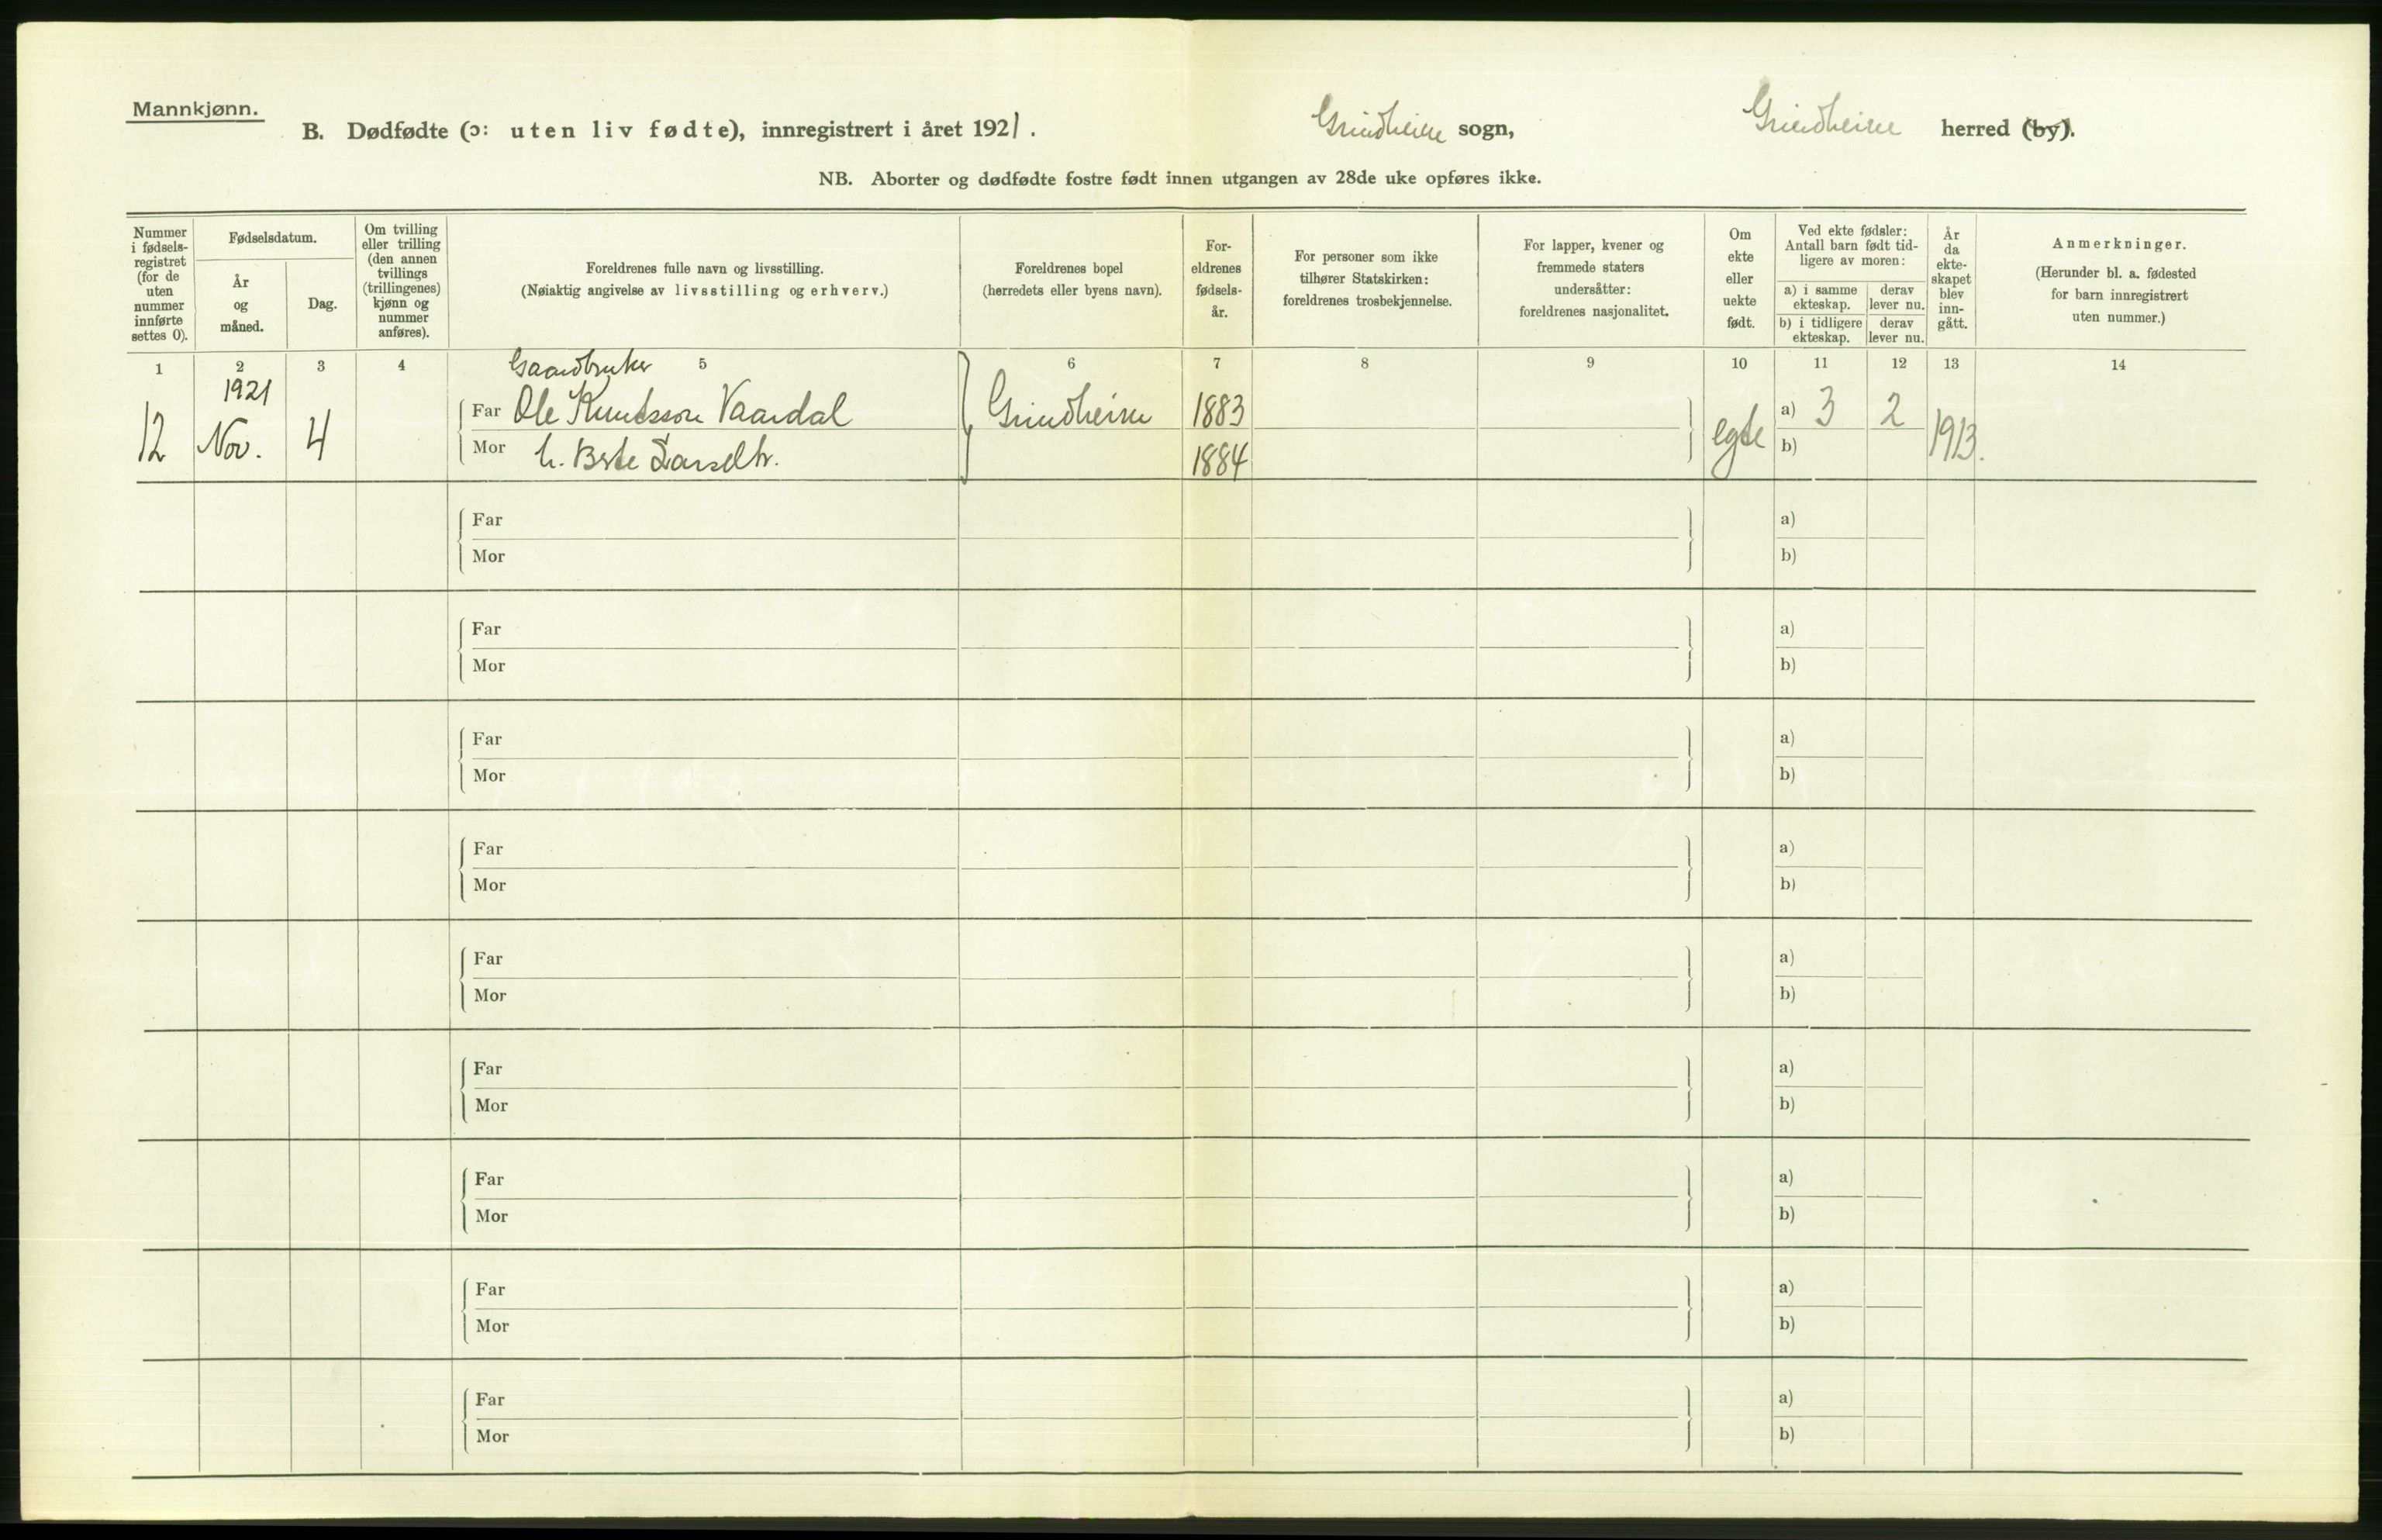 Mannkjønn.
B. Dødfødte (ɔ: uten liv fødte), innregistrert i året 1921. Grindheim sogn, Grindheim herred (by).
NB. Aborter og dødfødte fostre født innen utgangen av 28de uke opføres ikke.
Nummer i fødsels- registret (for de uten nummer innførte settes 0).
Fødselsdatum.
År og måned.
Dag.
Om tvilling eller trilling (den annen tvillings (trillingenes) kjønn og nummer anføres).
Foreldrenes fulle navn og livsstilling.
(Nøiaktig angivelse av livsstilling og erhverv.)
Foreldrenes bopel
(herredets eller byens navn).
For- eldrenes fødsels- år.
For personer som ikke tilhører Statskirken: foreldrenes trosbekjennelse.
For lapper, kvener og fremmede staters undersåtter: foreldrenes nasjonalitet.
Om ekte eller uekte født.
Ved ekte fødsler: Antall barn født tid- ligere av moren:
a) i samme ekteskap.
derav lever nu.
b) i tidligere ekteskap.
derav lever nu.
År da ekte- skapet blev inn- gått.
Anmerkninger.
(Herunder bl. a. fødested for barn innregistrert uten nummer.)
1 2 3 4 5 6 7 8 9 10 11 12 13 14
Gaardbruker
1921
12 Nov. 4 Far Ole Knudsson Vaardal Grindheim 1883 egte a) 3 2 1913.
Mor h. Berte Larsdtr. 1884 b)
Far a)
Mor b)
Far a)
Mor b)
Far a)
Mor b)
Far a)
Mor b)
Far a)
Mor b)
Far a)
Mor b)
Far a)
Mor b)
Far a)
Mor b)
Far a)
Mor b)